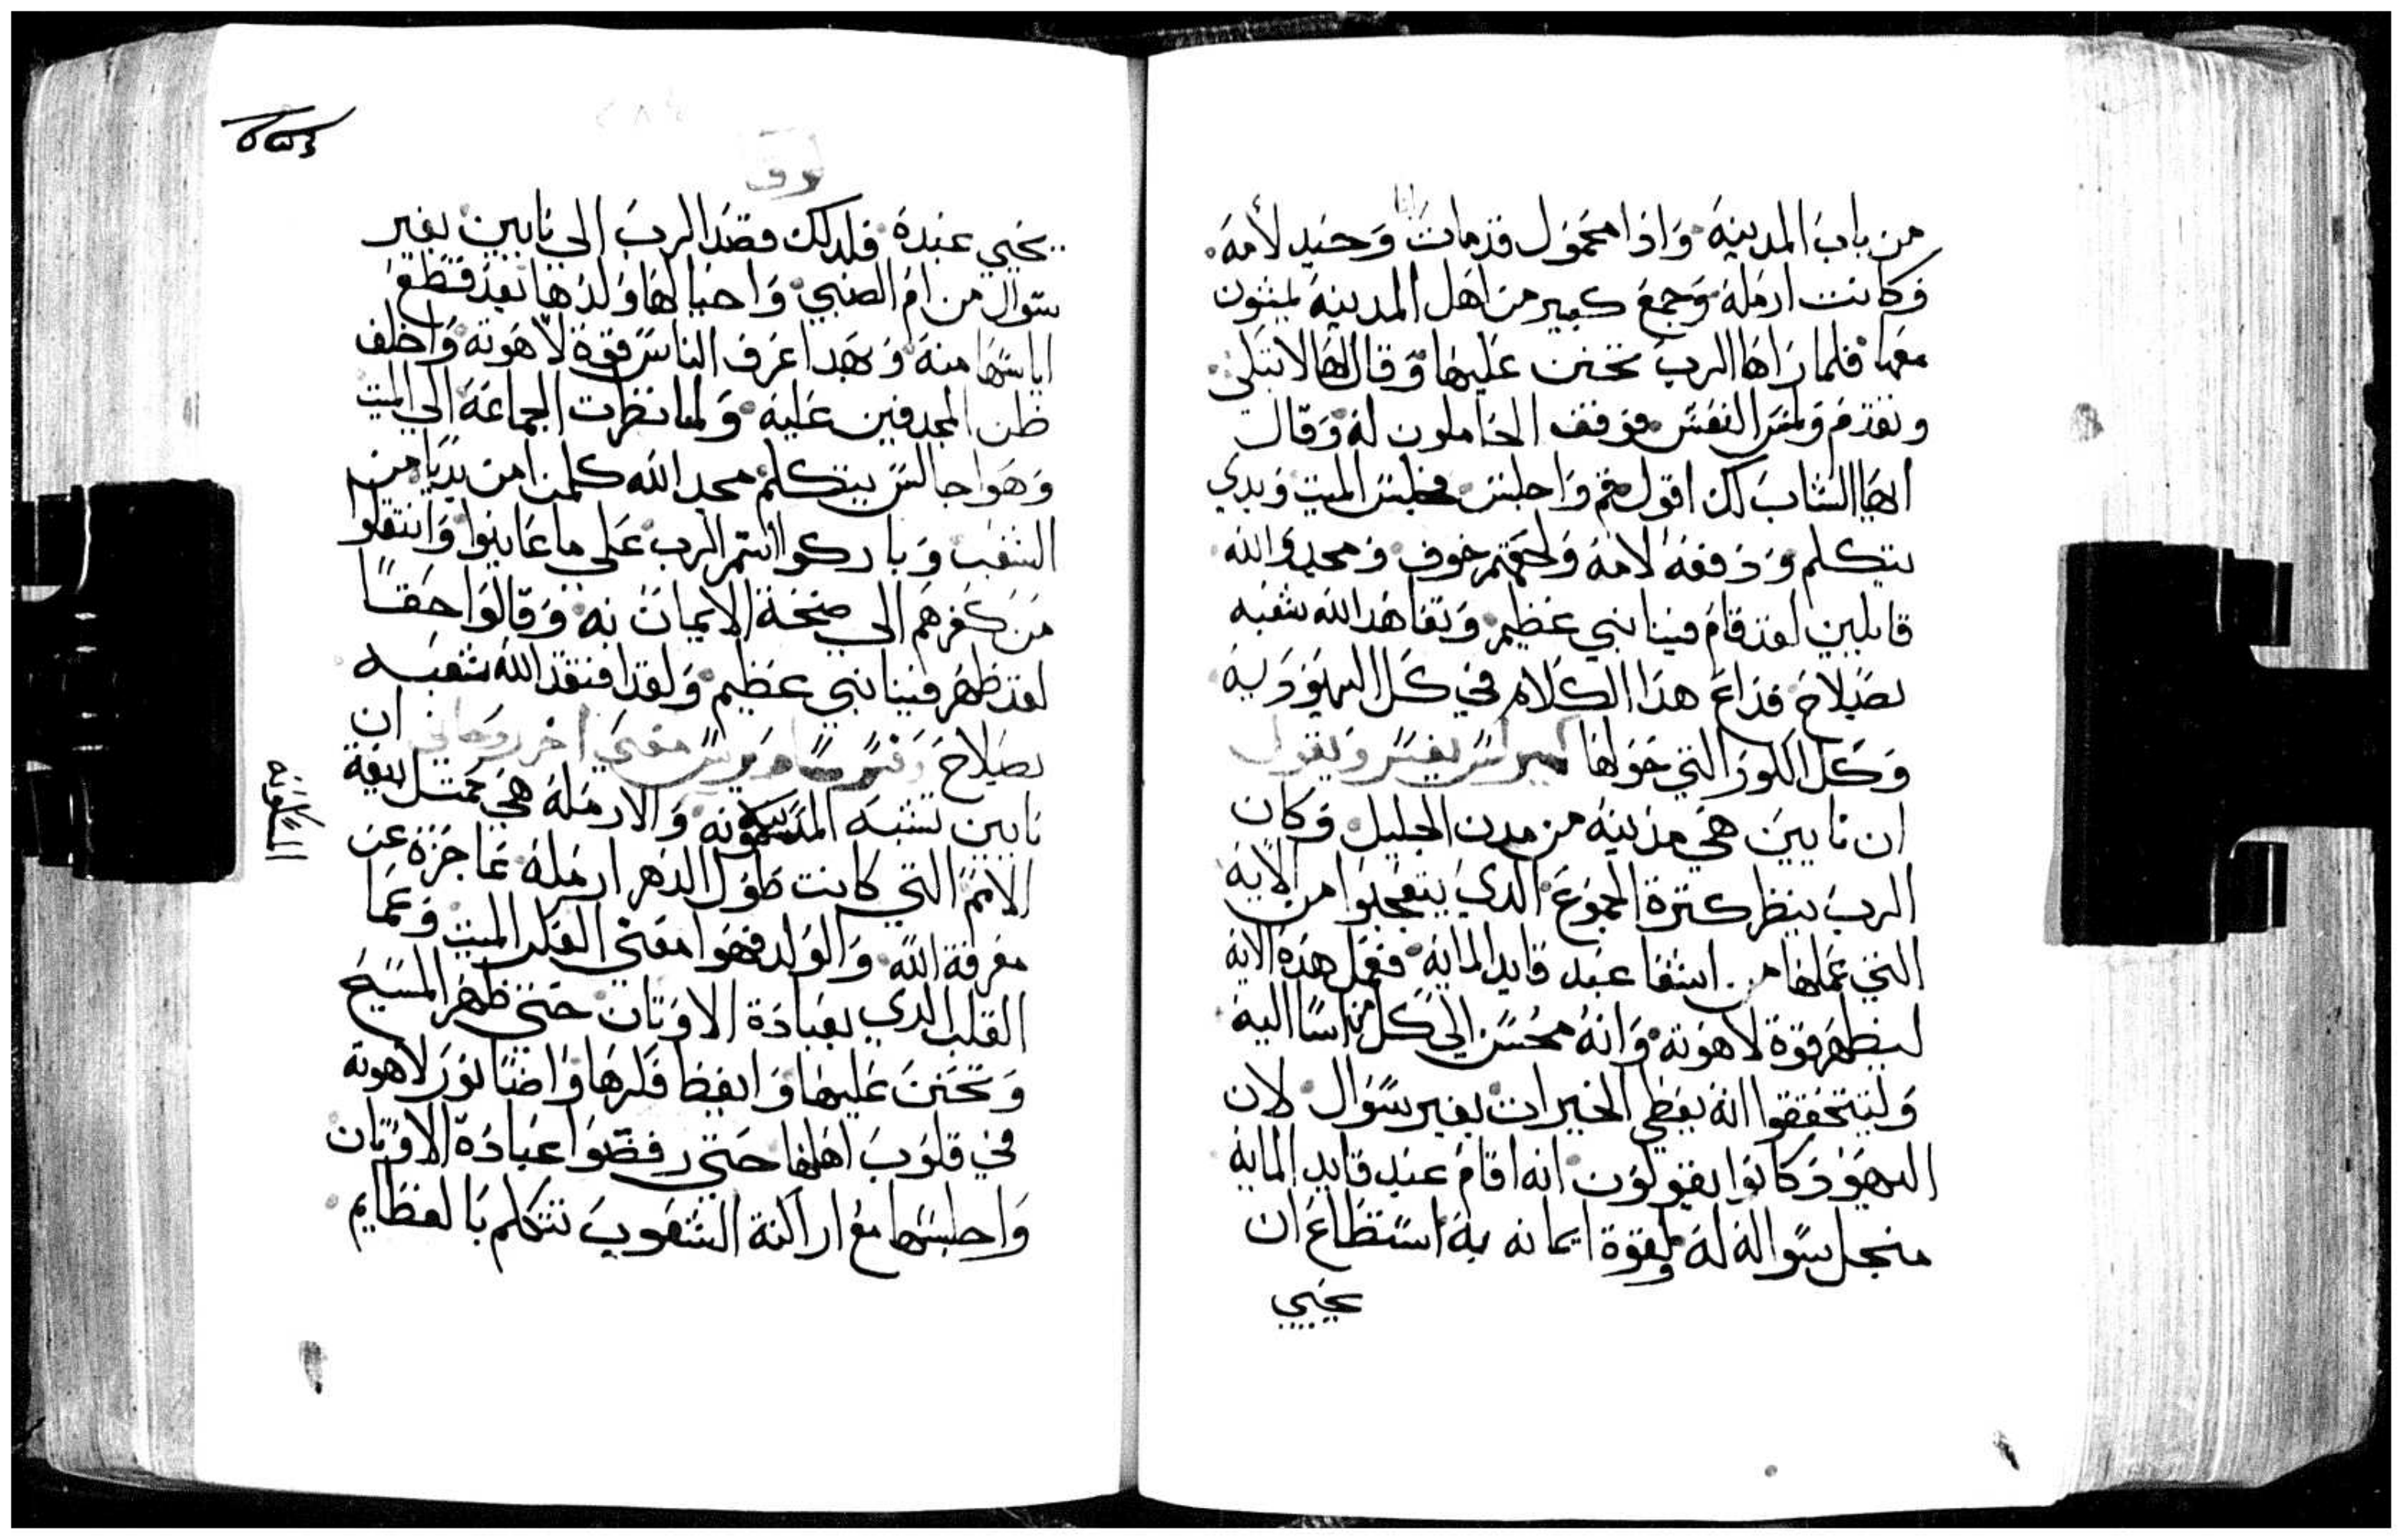 من باب المدينة وَاذا محَموُل قدمات وَحَيد لأمه
فكانت ارملة وَجمعَ كبير من اهل المدينة يمشون
معها فلما رَاها الربَ تحَنن عَليها وَقال لها لا تبكي
وتقدمَ وَلمس النعش فوقف الحَاملون له وَقال
ايها الشابَ لك اقول قم وَاجلس فجلس الميت وَبدي
يتكلم وَدَفعهَ لامهَ وَلحقهم خوف وَمجدوا الله
قايلين لقد قامَ فينا نبي عَظيم وَتعَاهَد الله شعَبه
بصَلاحَ فذاعَ هذا الكلام في كل اليهوُدَيهَ
وَكل الكورَ التي حَوَلها كيرلس يفسر وَيقول
ان نايينَ هي مدَينة من مدن الجليل وَكان
الربَ ينظر كثرة الجموعَ الدي يتعجبوا من الاية
التي عَملها من اشفا عَبد قايد الماية ففعَل هَذه الاية
ليظهر قوة لاهَوته وَانهُ محُسَن الى كل من اسَا اليه
وَليتحَققوا انه يعَطي الخيرات بغير سؤال لان
اليهَوُدَ كانوُا يقولون انه اقامَ عند قايد الماية
منجل سَواله له وَلقوة ايمانه به اسَتطَاعَ ان
يحَيي
لوق
يحَيي عَبدَة فلدلك قصَد الربَ الى نايين بغَير
سَوال من امَ الصَبي وَاحَيا لها وَلدَها بعَد قطعَ
اياسَها منه وَبهَدا عَرف الناسَ قوة لاهَوته وَاخلف
ظن المجدفين عَليه وَلما نظرَت الجماعَة الي الميت
وَهَوا جالسَ يتكلم مجدَ الله كلمن امن بهَ من
الشعَب وَباركوا اسَم الربَ عَلي ما عَاينوا وَانتقلوا
من كفرهَم الي صَحَة الايمان به وَقالوَا حَقاً
لقد ظهَر فينا نبي عظيم وَلقد افتقد الله شعَبه
بصَلاحَ وَفسَر سَاويرَس معَني اخر روَحاني ان
نايين تشبه المسَكونه وَالارمَلة هَي تمثل بيعَة
المسَكوَنه
الامَم التي كانت طوُل الدَهر ارمَلة عَاجزَة عَن
معَرفة الله وَالوَلد فهوَا معَني القلب الميت وَعَما
القلب الدي بعَبادَة الاوَثان حَتى ظهَر المسَيح
وَتحَنن عَليها وَايقظ فكرهَا وَاضَا نوُرَ لاهَوته
في قلوُبَ اهَلها حَتي رفضَوا عَبادَة الاوَثان
وَاجلسَها معَ اراكنة الشعَوب تتكلم بَالعَظايم